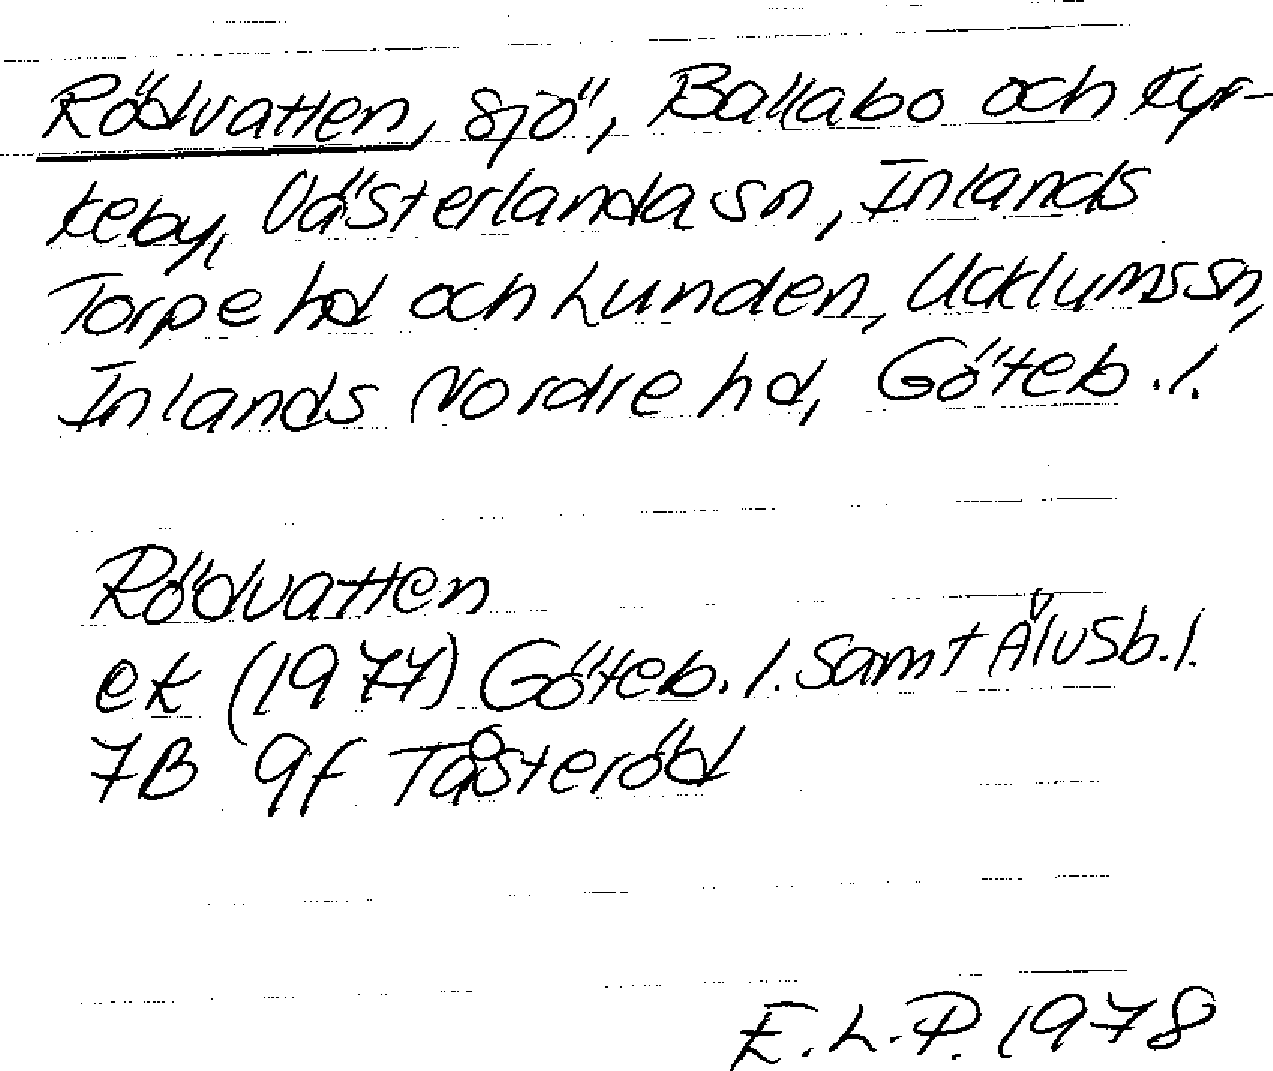 Rödvatten, sjö, Ballabo och Kyr-
keby, Västerlanda sn, Inlands
Torpe hd och Lunden, Ucklums sn,
Inlands Nordre hd, Göteb. l.
Rödvatten
ek (1977) Göteb. l. samt Älvsb. l.
7B 9f Tåsteröd
E. L. P. 1978